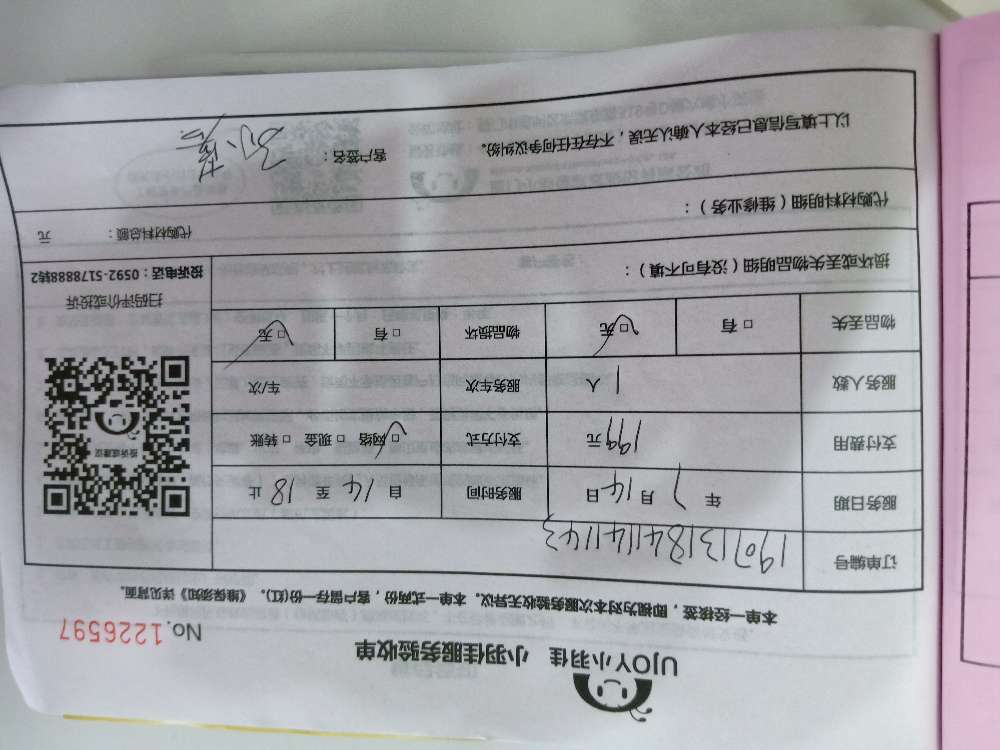 UJOY小羽佳 小羽佳服务验收单
No.1226597
本单一经接签，即视为对本次服务验收无异议。本单一式两份，客户留存一份(红)。《维保须知》详见背面。
订单编号 190713184114143
服务日期 年 7 月 14 日 服务时间 自 14 至 18 止
支付费用 199 元 支付方式 □ 网络 □ 现金 □ 转账
服务人数 1 人 服务车次 车/次
物品丢失 □ 有 □ 无 物品损坏 □ 有 □ 无
投诉或建议
扫码评价或投诉
投诉电话：0592-5178888转2
损坏或丢失物品明细（没有可不填）：
代购材料明细（维修业务）： 代购材料总额： 元
以上填写信息已经本人确认无误，不存在任何争议纠纷。 客户签名：